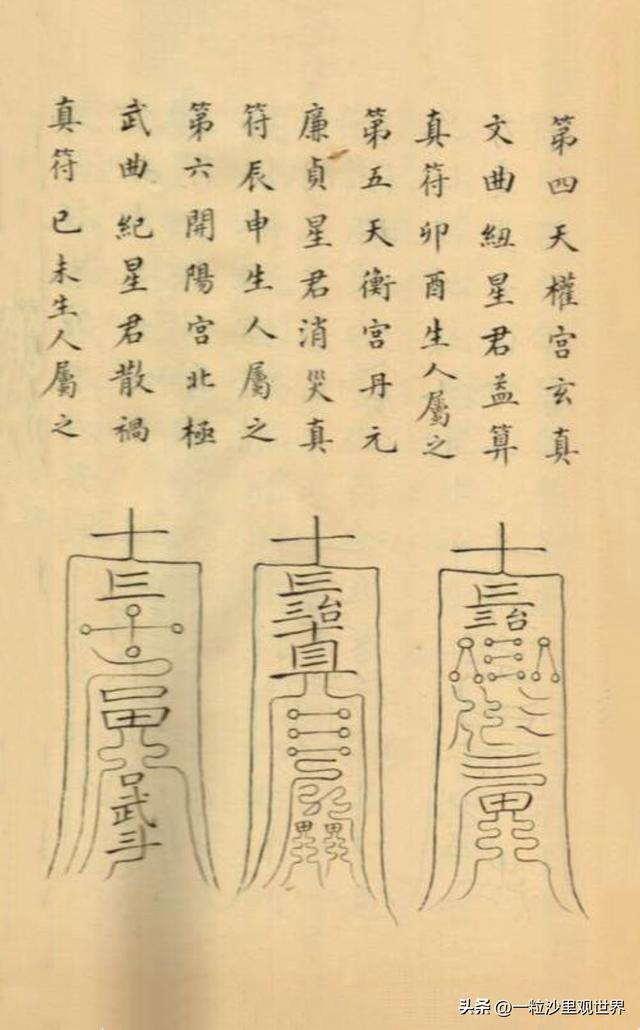 第四天權宫玄真
文曲紐星君益算
真符卯酉生人屬之
第五天衡宫丹元
廉貞星君消災真
符辰申生人屬之
第六開陽宫北極
武曲紀星君散禍
真符巳未生人屬之
三台
三台
武斗
头条 @一粒沙里观世界